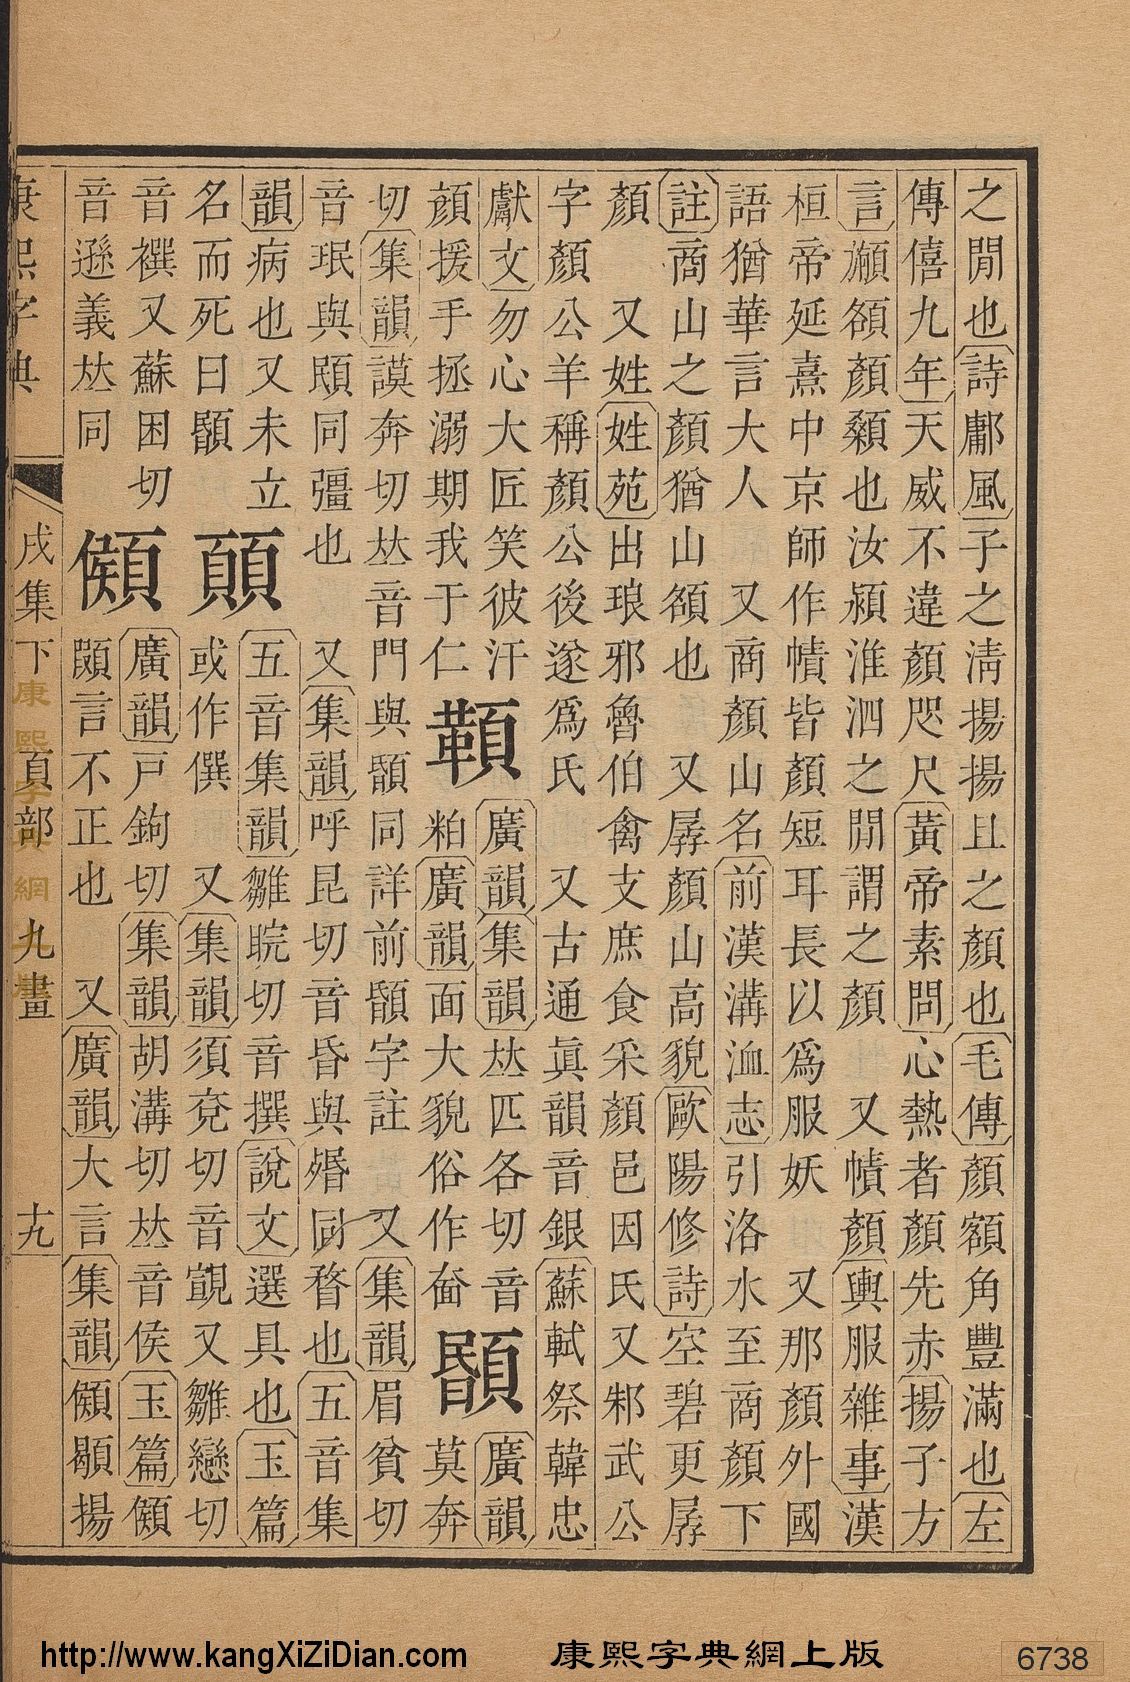 之閒也詩鄘風子之淸揚揚且之顏也毛傳顏額角豐滿也左
傳僖九年天威不違顏咫尺黃帝素問心熱者顏先赤揚子方
言顚頟顏顙也汝潁淮泗之閒謂之顏 又幘顏輿服雜事漢
桓帝延熹中京師作幘皆顏短耳長以爲服妖 又那顏外國
語猶華言大人 又商顏山名前漢溝洫志引洛水至商顏下
註商山之顏猶山頟也 又孱顏山高貌歐陽修詩空碧更孱
顏 又姓姓苑出琅邪魯伯禽支庶食采顏邑因氏又邾武公
字顏公羊稱顏公後遂爲氏 又古通眞韻音銀蘇軾祭韓忠
獻文勿心大匠笑彼汗
顏援手拯溺期我于仁
廣韻集韻𠀤匹各切音
粕廣韻面大貌俗作奤
顝
廣韻莫奔
切集韻謨奔切𠀤音門與顐同詳前顐字註 又集韻眉貧切
音珉與䫒同彊也 又集韻呼昆切音昏與婚同瞀也五音集
韻病也又未立
名而死曰顝
五音集韻雛睆切音撰說文選具也玉篇
或作僎 又集韻須兗切音䚙又雛戀切
音襈又蘇困切
音遜義𠀤同
廣韻戸鉤切集韻胡溝切𠀤音侯玉篇
言不正也 又廣韻大言集韻
康熙字典 戌集下 頁部 九畫 十九
康熙字典網上版
http://www.kangXiZiDian.com 康熙字典網上版 6738